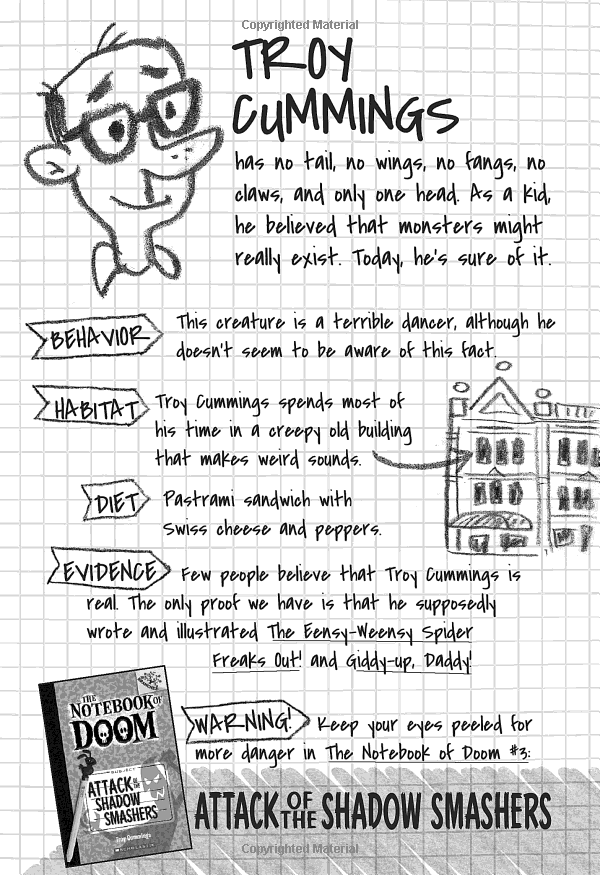 Copyrighted Material
TROY
CUMMINGS
has no tail, no wings, no fangs, no
claws, and only one head. As a kid,
he believed that monsters might
really exist. Today, he's sure of it.
BEHAVIOR
This creature is a terrible dancer, although he
doesn't seem to be aware of this fact.
HABITAT
Troy Cummings spends most of
his time in a creepy old building
that makes weird sounds.
DIET
Pastrami sandwich with
Swiss cheese and peppers.
EVIDENCE
Few people believe that Troy Cummings is
real. The only proof we have is that he supposedly
wrote and illustrated The Eensy-Weensy Spider
Freaks Out! and Giddy-up, Daddy!
THE
NOTEBOOK OF
DOOM
SUBJECT
ATTACK OF THE
SHADOW
SMASHERS
Troy Cummings
SCHOLASTIC
WARNING!
Keep your eyes peeled for
more danger in The Notebook of Doom #3:
ATTACK OF THE SHADOW SMASHERS
Copyrighted Material